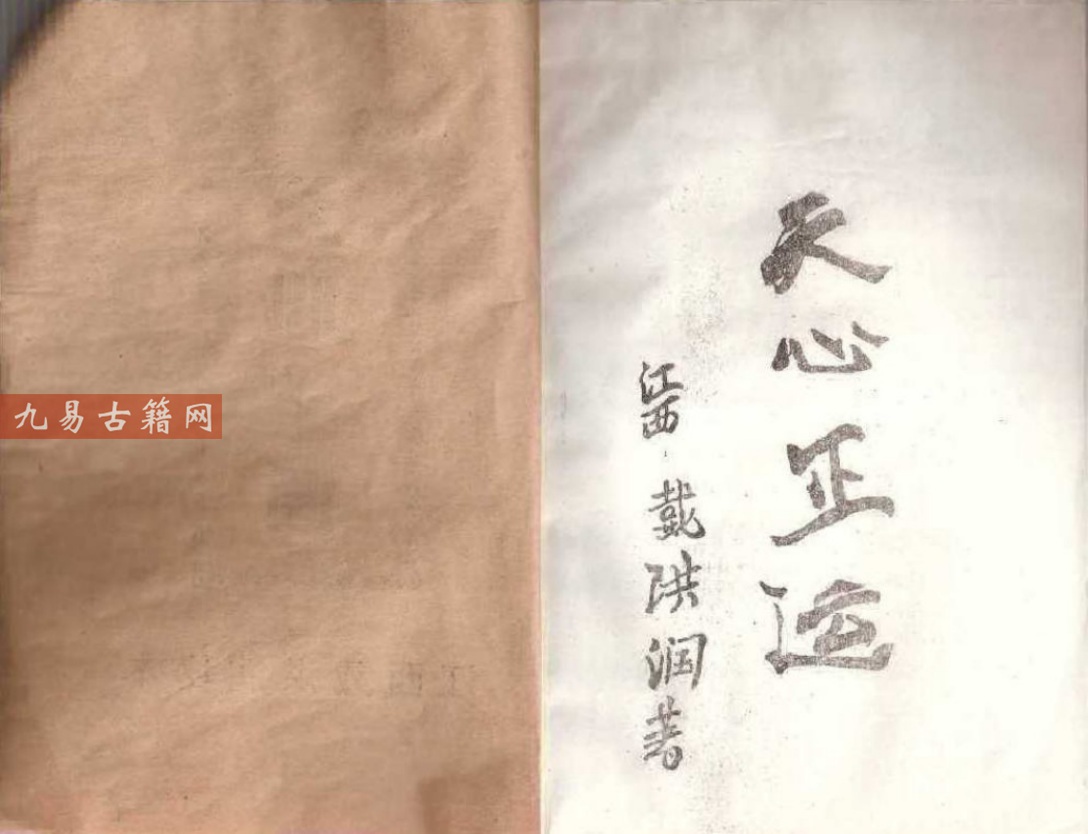 天心正运
江西 戴洪润著
九易古籍网